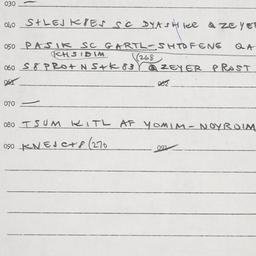 030
040 S+LESK8ES SC DYASHKE & ZEYER
050 PASIK SC GARTL-SHTOFENG QA
KHSIDIM (268
060 S8PRO+NS+K83 & ZEYER PROST
061 062
070 —
080 TSUM KITL AF YOMIM-NOYROIM
090 KNEJC+8 (270 092